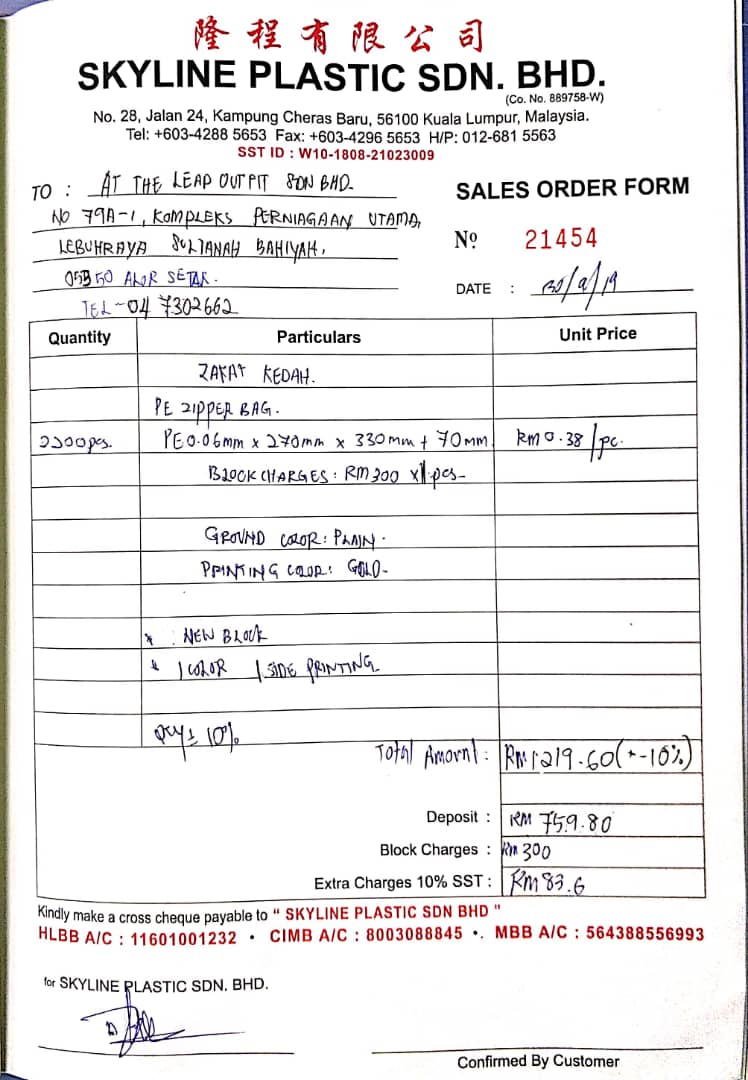 隆程有限公司
SKYLINE PLASTIC SDN. BHD.
(Co. No. 889758-W)
No. 28, Jalan 24, Kampung Cheras Baru, 56100 Kuala Lumpur, Malaysia.
Tel: +603-4288 5653 Fax: +603-4296 5653 H/P: 012-681 5563
SST ID : W10-1808-21023009
TO : AT THE LEAP OUTFIT SDN BHD
SALES ORDER FORM
NO 79A-1, KOMPLEKS PERNIAGAAN UTAMA,
LEBUHRAYA SULTANAH BAHIYAH,
Nº 21454
05350 ALOR SETAR.
DATE : 30/9/19
TEL-04 7302662
Quantity Particulars Unit Price
ZAKAT KEDAH.
PE ZIPPER BAG.
2200pcs. PE 0.06mm x 270mm x 330mm + 70mm RM 0.38/pc.
BLOCK CHARGES: RM300 x 1 pcs
GROUND COLOR: PLAIN.
PRINTING COLOR: GOLD-
* : NEW BLOCK
* 1 COLOR 1 SIDE PRINTING
QTY ± 10%
Total Amount : RM1219.60(+-10%)
Deposit : RM 759.80
Block Charges : RM 300
Extra Charges 10% SST : RM 83.6
Kindly make a cross cheque payable to “ SKYLINE PLASTIC SDN BHD ”
HLBB A/C : 11601001232 • CIMB A/C : 8003088845 •. MBB A/C : 564388556993
for SKYLINE PLASTIC SDN. BHD.
Confirmed By Customer